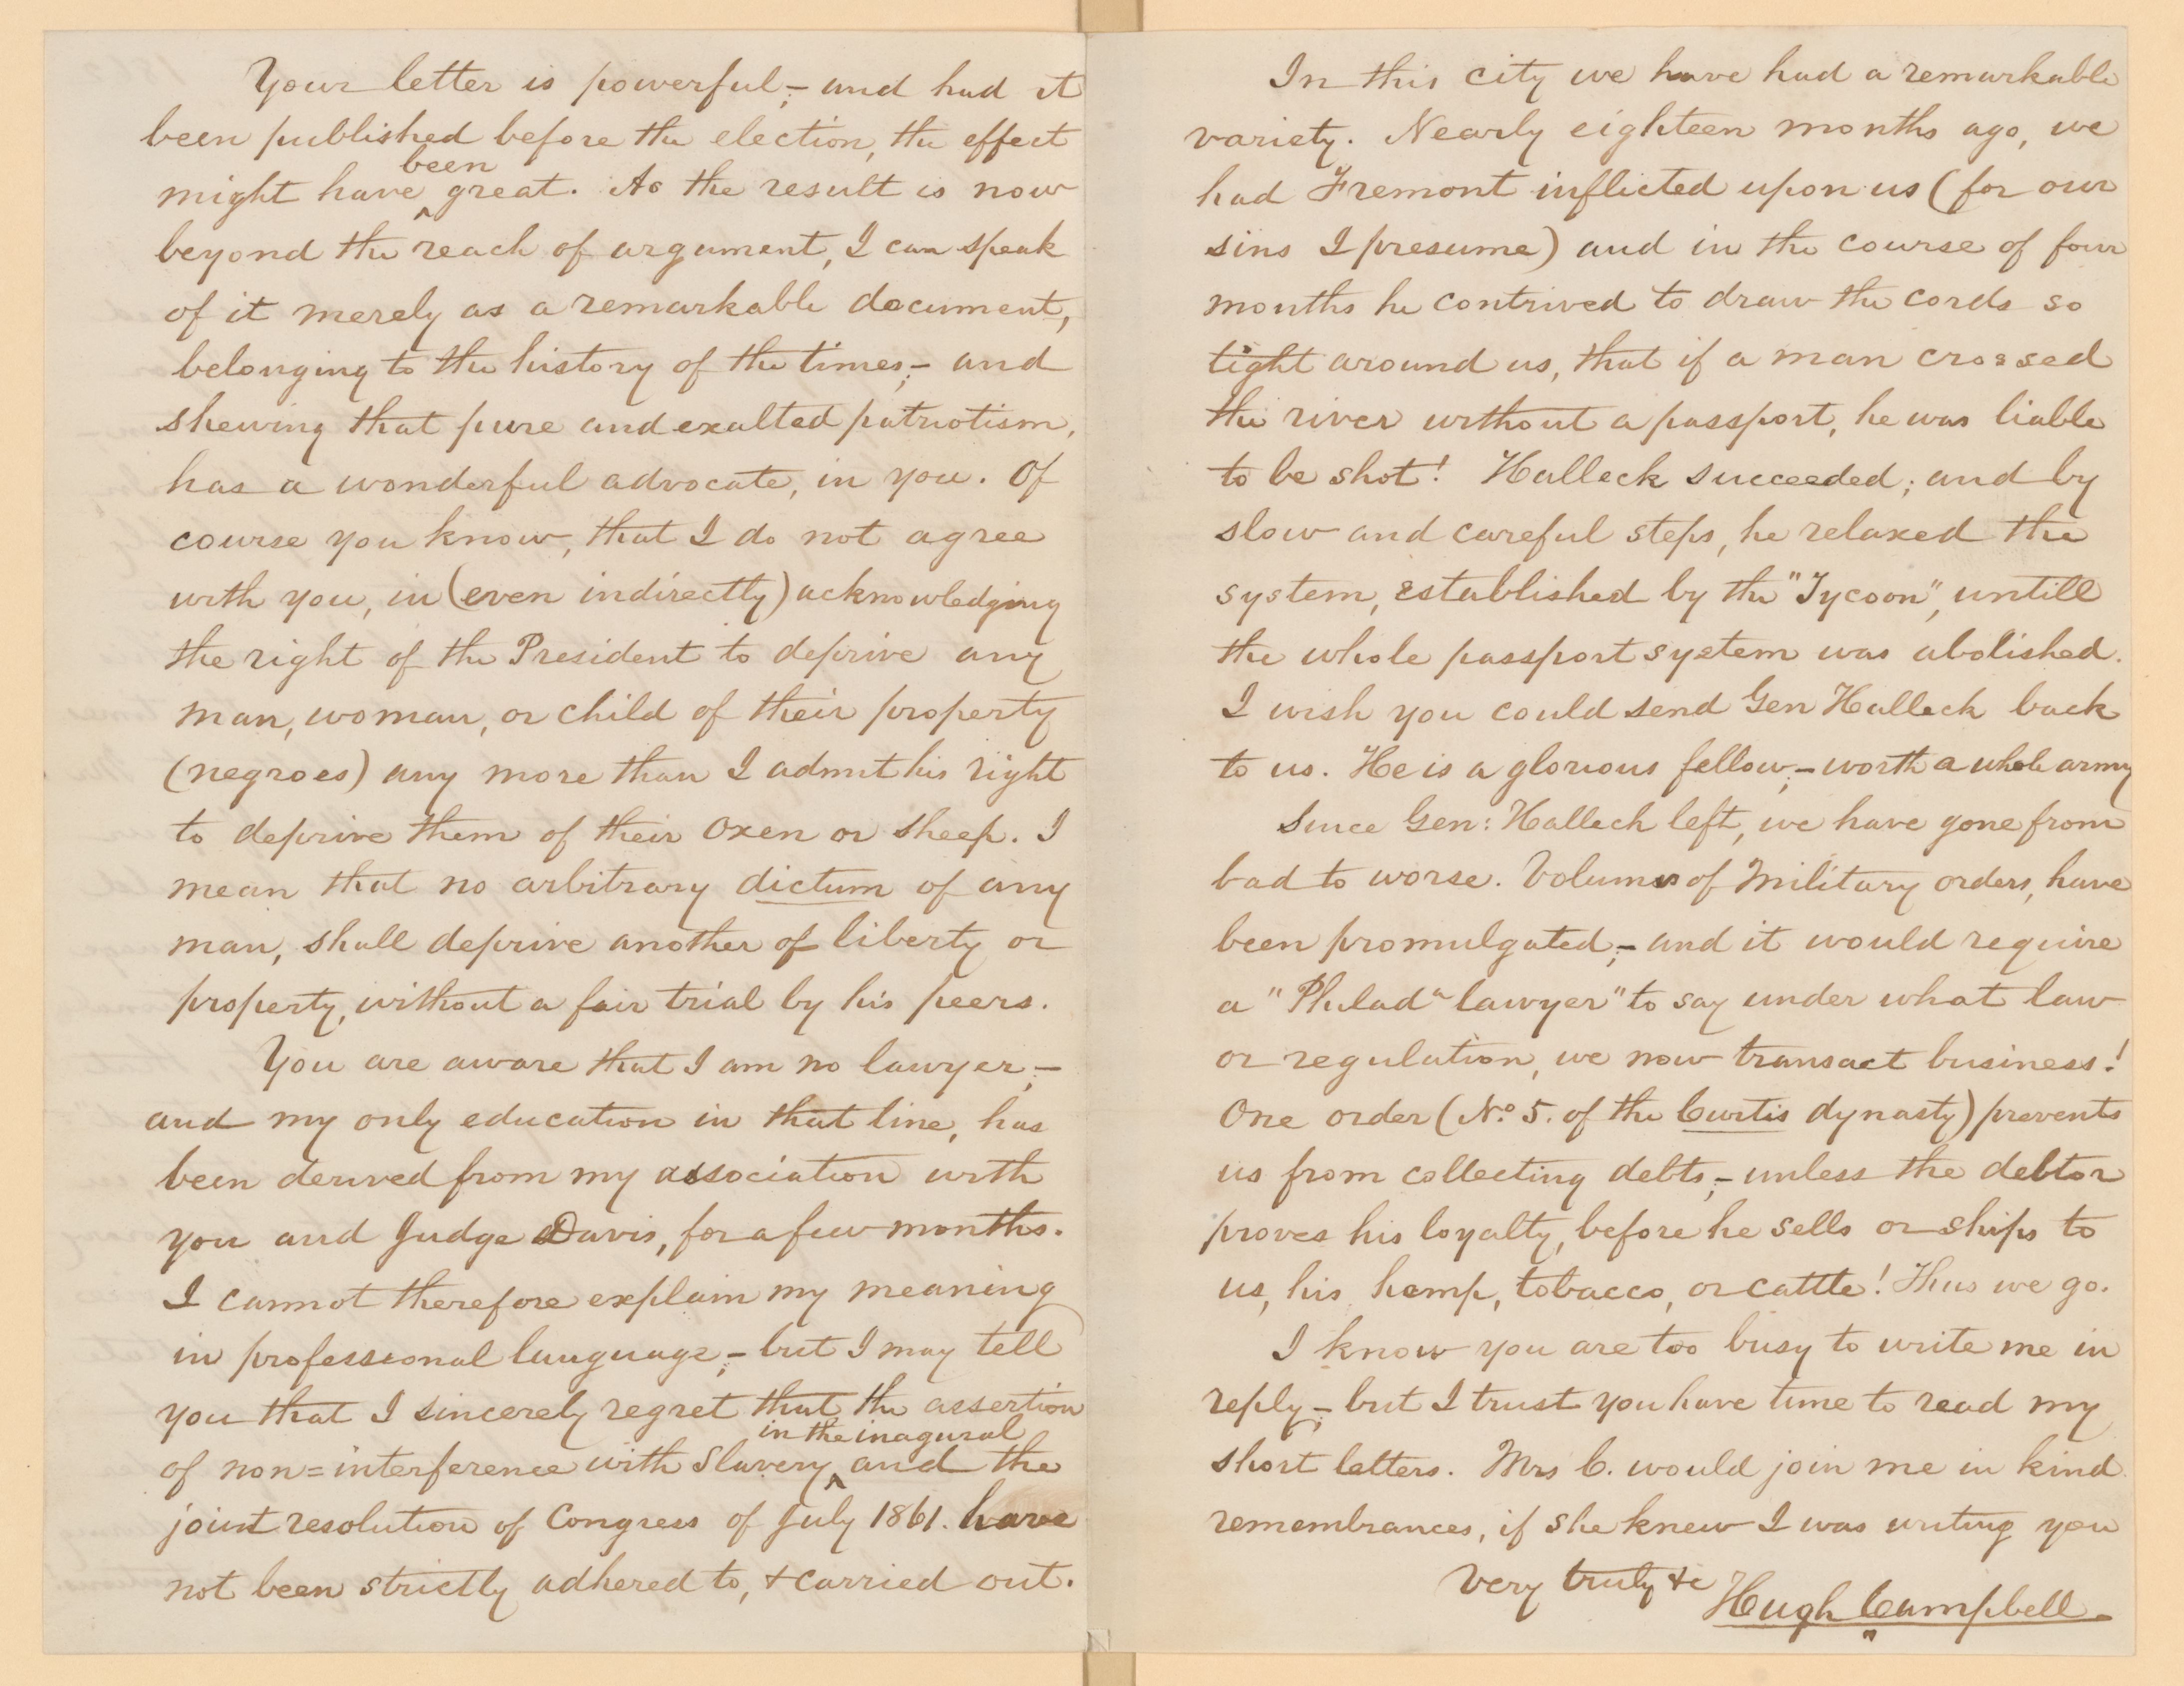 Your letter is powerful;- and had it
been published before the election, the effect
been
might have great. As the result is now
beyond the reach of argument, I can speak
of it merely as a remarkable document,
belonging to the history of the times;- and
shewing that pure and exalted patriotism,
has a wonderful advocate, in you. Of
course you know, that I do not agree
with you, in (even indirectly) acknowledging
the right of the President to deprive any
man, woman, or child of their property
(negroes) any more than I admit his right
to deprive them of their oxen or sheep. I
mean that no arbitrary dictum of any
man, shall deprive another of liberty or
property, without a fair trial by his peers.
You are aware that I am no lawyer;-
and my only education in that line, has
been derived from my association with
you and Judge Davis, for a few months.
I cannot therefore explain my meaning
in professional language;- but I may tell
you that I sincerely regret that the assertion
in the inagural
of non=interference with Slavery and the
joint resolution of Congress of July 1861. have
not been strictly adhered to, & carried out.
In this city we have had a remarkable
variety. Nearly eighteen months ago, we
had Fremont inflicted upon us (for our
sins I presume) and in the course of four
months he contrived to draw the cords so
tight around us, that if a man crossed
the river without a passport, he was liable
to be shot! Halleck succeeded; and by
slow and careful steps, he relaxed the
system, established by the "Tycoon", untill
the whole passport system was abolished.
I wish you could send Gen Halleck back
to us. He is a glorious fellow;- worth a whole army
Since Gen: Halleck left, we have gone from
bad to worse. Volumes of Military orders, have
been promulgated;- and it would require
a "Philada lawyer" to say under what law
or regulation, we now transact business!
One order (No. 5. of the Curtis dynasty) prevents
us from collecting debts;- unless the debtor
proves his loyalty, before he sells or ships to
us, his hemp, tobacco, or cattle! Thus we go.
I know you are too busy to write me in
reply;- but I trust you have time to read my
short letters. Mrs C. would join me in kind
remembrances, if she knew I was writing you
Very truly &c
Hugh Campbell